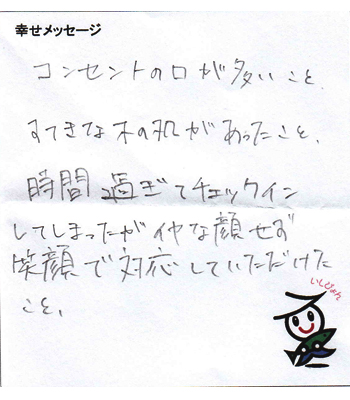 幸せメッセージ
コンセントの口が多いこと、
すてきな木の机があったこと、
時間過ぎてチェックイン
してしまったがイヤな顔せず
笑顔で対応していただけた
こと、
いしぴょん